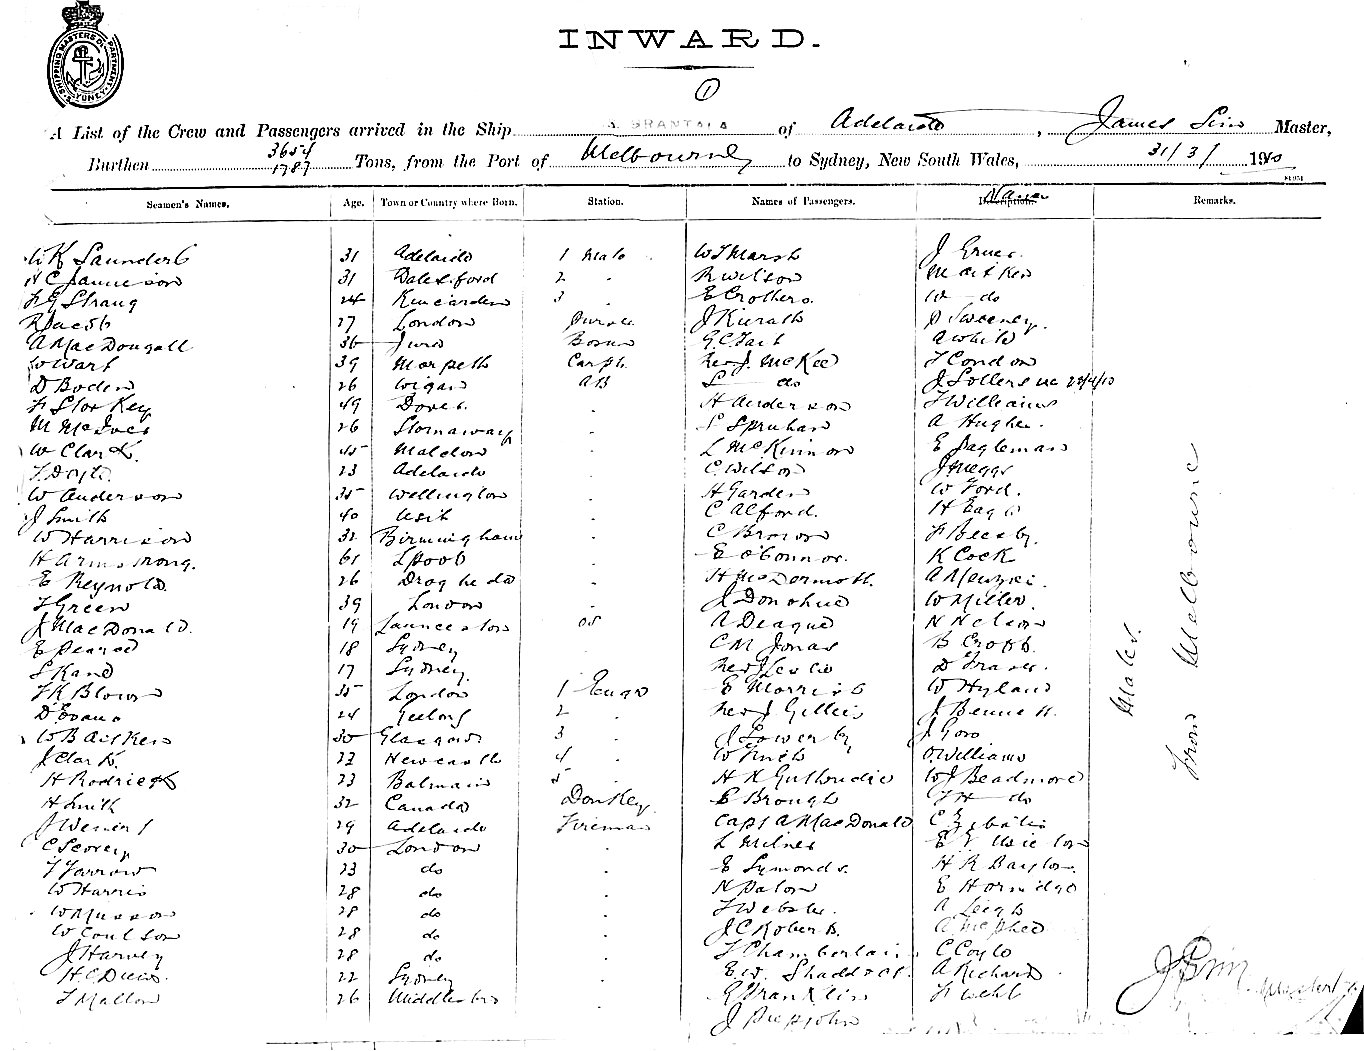 INWARD.
1
A List of the Crew and Passengers arrived in the Ship GRANTALA of Adelaide, James Sim Master,
Burthen 3654 1787 Tons, from the Port of Melbourne to Sydney, New South Wales, 31/3/1910
Seamen's Names. Age. Town or Country where Born. Station. Names of Passengers. Names Remarks.
W K Saunders 31 Adelaide 1 Mate W T Marsh J
H C Jamieson 31 Dalesford 2 " R Wilson M Aitken
24 Kincardine 3 " E Crothers W do
R Jacob 27 London Purser J P Sweeney
A MacDougall 36 Jura Bosun G C Tait A White
W Wart 39 Morpeth Carptr Rev J. McKee T Condon
D Boden 26 Wigan AB do
F Storkey 49 Dover " H Anderson T Williams
M McIver 26 Stornaway " A Hughes
W Clark 45 Maldon " L McKinnon E
T Doyle 23 Adelaide " C Wilson J Meggs
W Anderson 35 Wellington " H Garden W Ford.
J Smith 40 " C Alford. H Eagle
W Harrison 32 Birmingham " C Brown F Beesby.
H Armstrong. 61 Lpool " E O'Connor. K Cock
E Reynolds 26 Drogheda " H McDermott. A Menzies.
T Green 39 London " J Donohue W Miller.
J MacDonald. 19 Launceston OS A Deague N Nelson
E Pearce 18 Sydney C M Jonas B Cropp.
S Kand 17 Sydney. Rev J Leslie D Fraser.
T K Blown 35 London 1 Engr E Morris W Hyland
D Evans 24 Geelong 2 " Rev J Gillies J Bennett.
W B Aitken 30 Glasgow 3 " J Lowerby J Goro
J Clark. 22 Newcastle 4 " W Finch O. Williams
H Rodriegs 23 Balmain 5 " H K Guthridie W J Beadmore
H Smith 32 Canada Donkey. E Brough T H do
29 Adelaide Fireman Capt A MacDonald
C Scovey 30 London " L Milnes
T Farrow 23 do " E Symonds. H R
W Harris 28 do " N E Hornidge
W Musson 28 do " T Webster. A Leigh
W Coulson 28 do " J C Roberts. A McPhee
J Harvey 28 do " T Chamberlain C Coyle
22 Sydney " E. W. Shaddock. A Richard
T Mallow 26 Middlesbro " G Franklin F Wehl
J Piepjohn
Males.
From Melbourne
J Sim